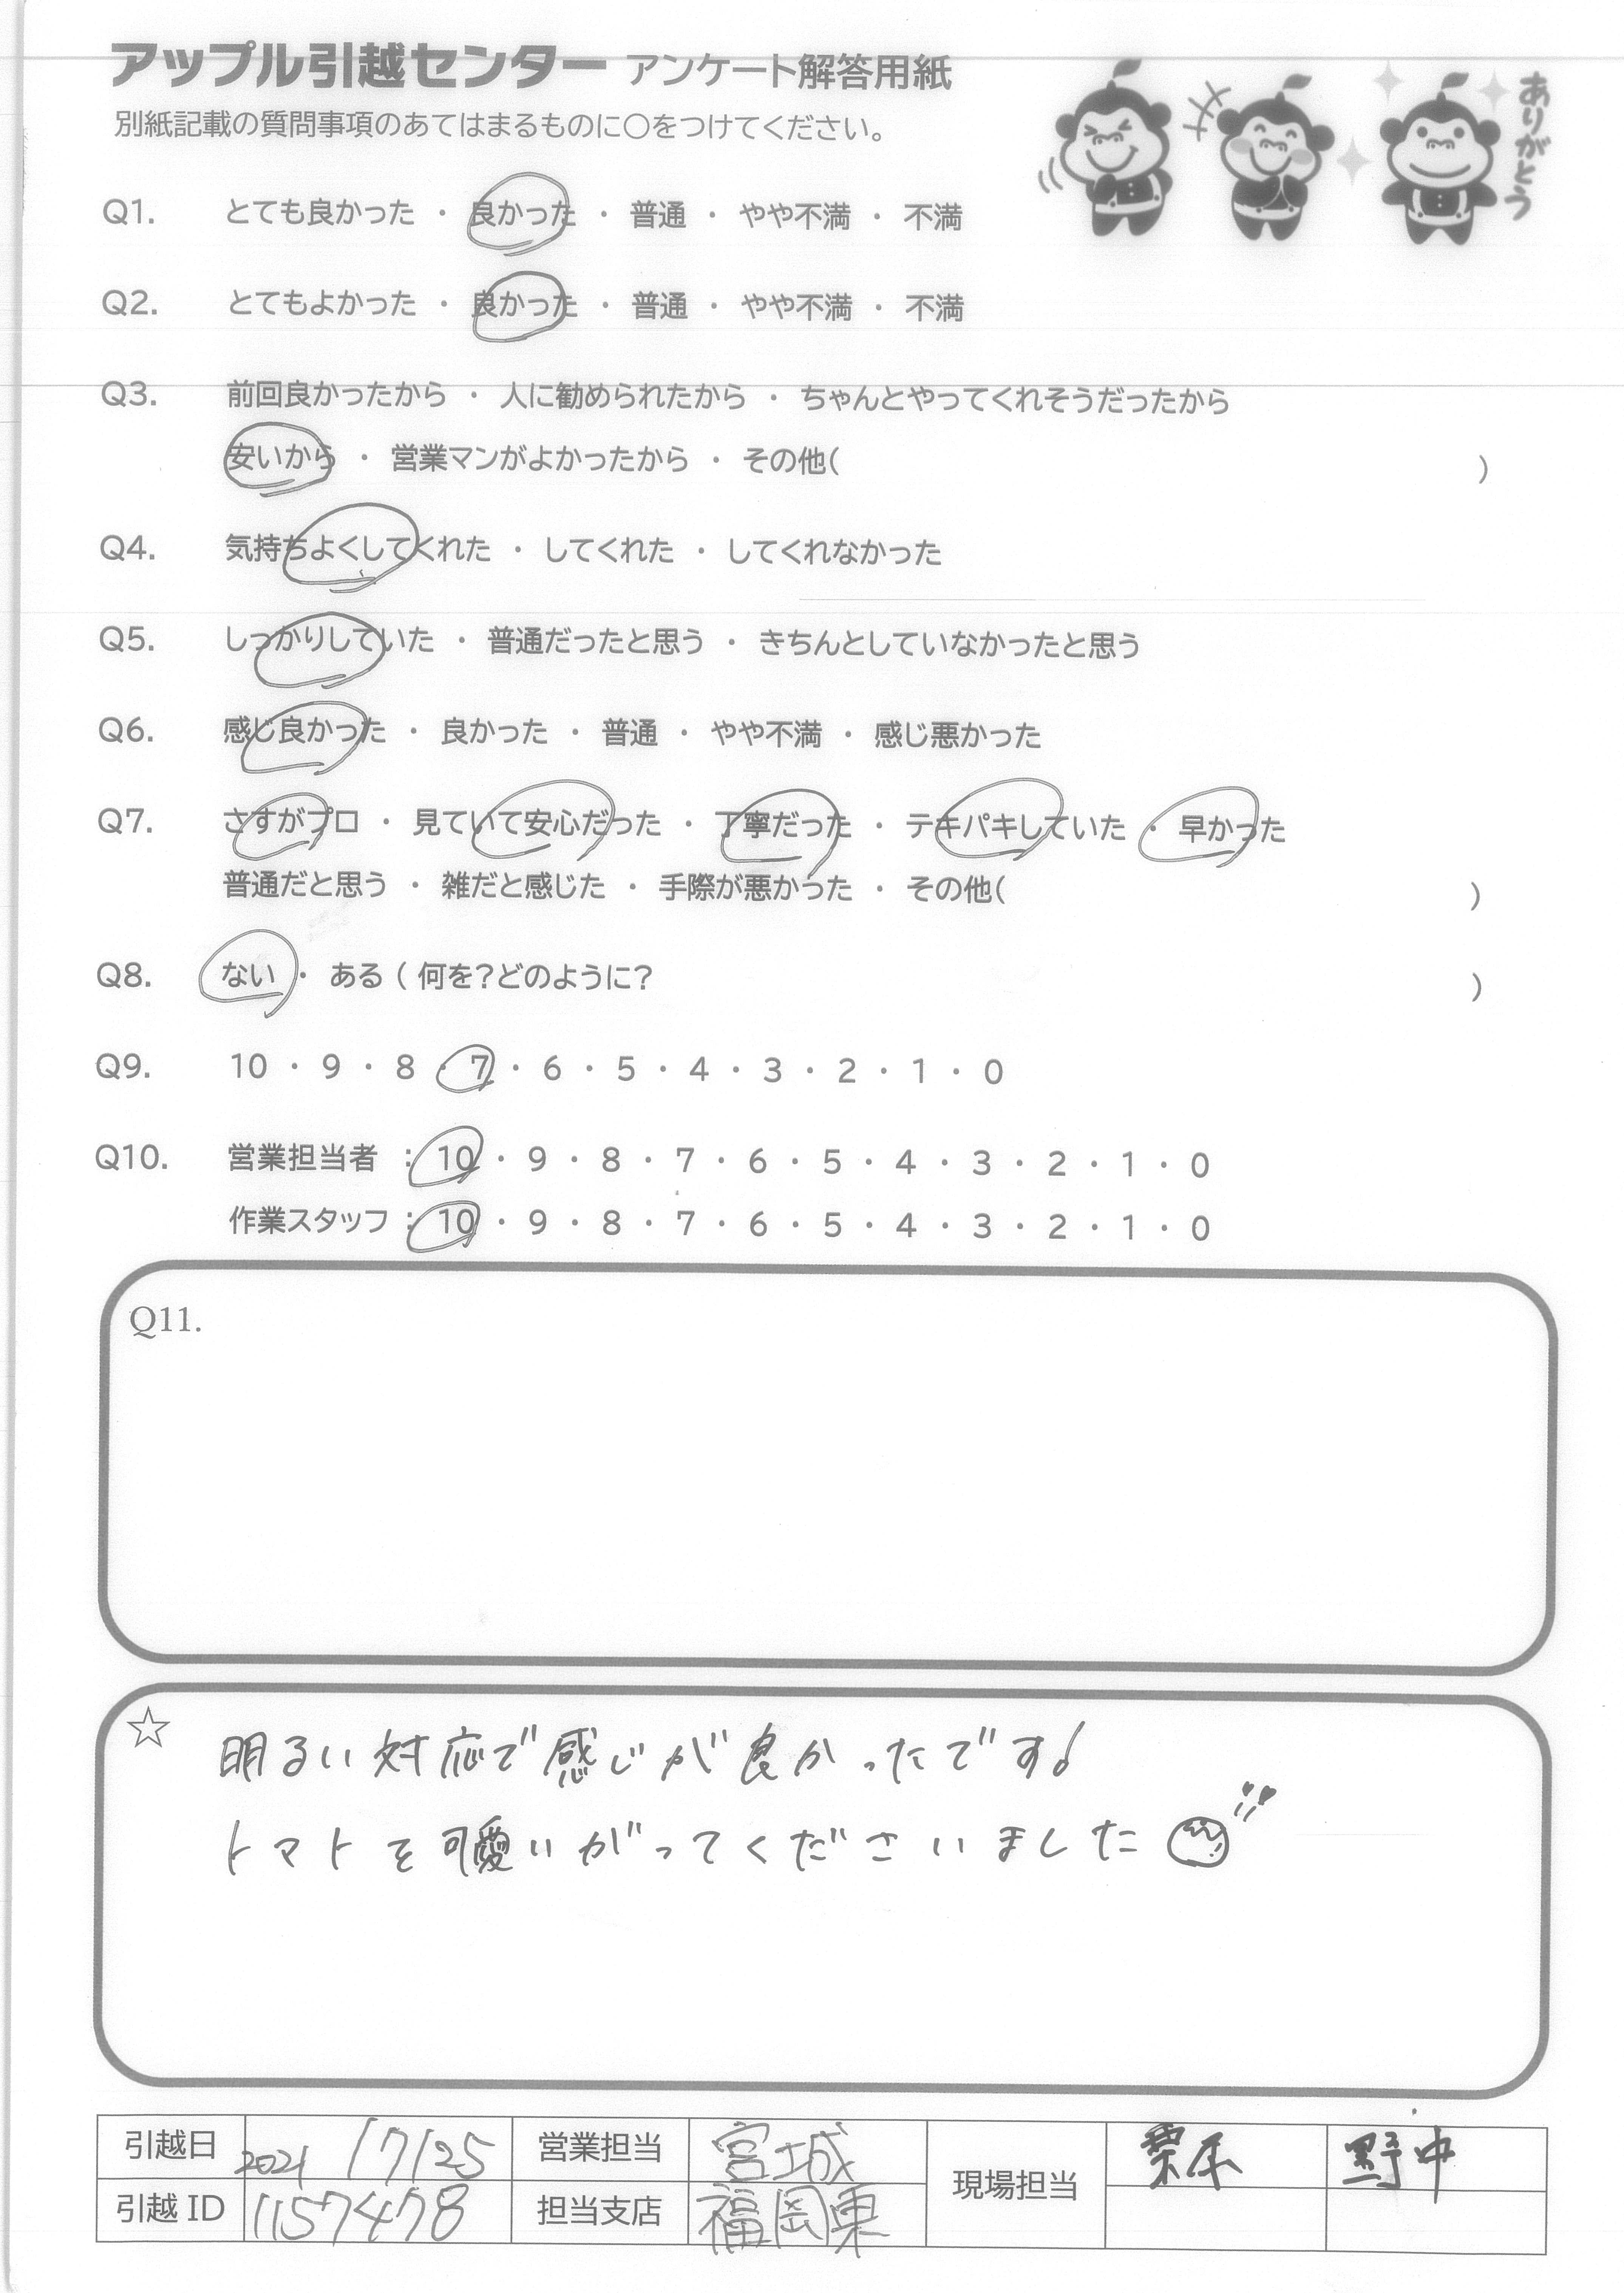 アップル引越センター アンケート解答用紙
別紙記載の質問事項のあてはまるものに○をつけてください。
ありがとう
Q1. とても良かった ・ 良かった ・ 普通 ・ やや不満 ・ 不満
Q2. とてもよかった ・ 良かった ・ 普通 ・ やや不満 ・ 不満
Q3. 前回良かったから ・ 人に勧められたから ・ ちゃんとやってくれそうだったから
安いから ・ 営業マンがよかったから ・ その他( )
Q4. 気持ちよくしてくれた ・ してくれた ・ してくれなかった
Q5. しっかりしていた ・ 普通だったと思う ・ きちんとしていなかったと思う
Q6. 感じ良かった ・ 良かった ・ 普通 ・ やや不満 ・ 感じ悪かった
Q7. さすがプロ ・ 見ていて安心だった ・ 丁寧だった ・ テキパキしていた ・ 早かった
普通だと思う ・ 雑だと感じた ・ 手際が悪かった ・ その他( )
Q8. ない ・ ある ( 何を?どのように? )
Q9. 10 ・ 9 ・ 8 ・ 7 ・ 6 ・ 5 ・ 4 ・ 3 ・ 2 ・ 1 ・ 0
Q10. 営業担当者 : 10 ・ 9 ・ 8 ・ 7 ・ 6 ・ 5 ・ 4 ・ 3 ・ 2 ・ 1 ・ 0
作業スタッフ : 10 ・ 9 ・ 8 ・ 7 ・ 6 ・ 5 ・ 4 ・ 3 ・ 2 ・ 1 ・ 0
Q11.
☆ 明るい対応で感じが良かったです!
トマトを可愛いがってくださいました
引越日 2021 / 7/25 営業担当 宮城 現場担当 栗原 野中
引越 ID 1157478 担当支店 福岡東